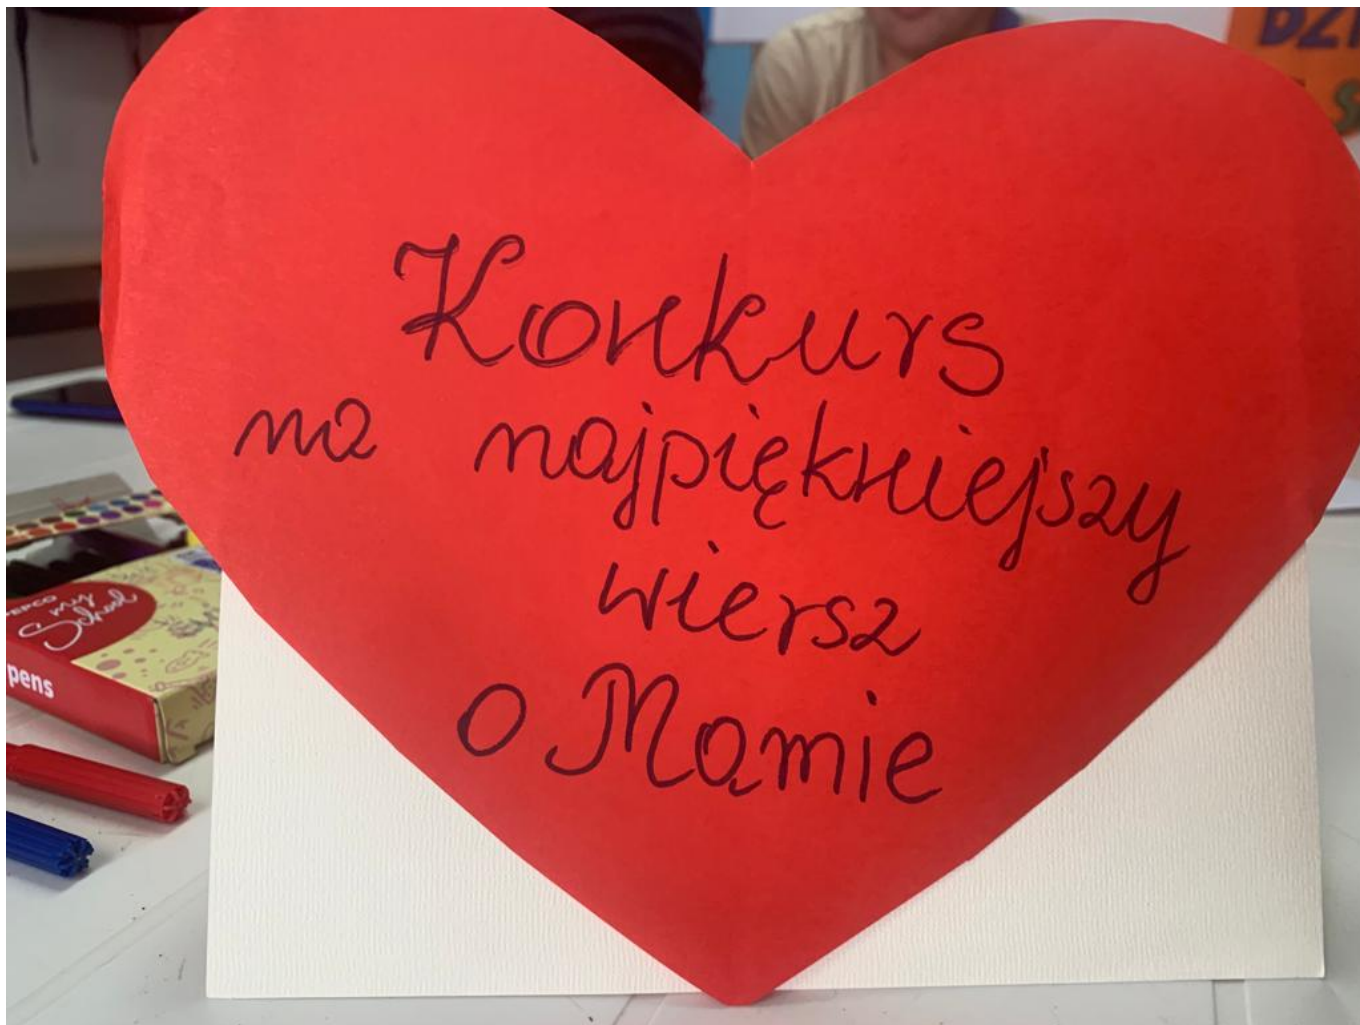 Konkurs
na najpiękniejszy
wiersz
o Mamie
my
School
pens